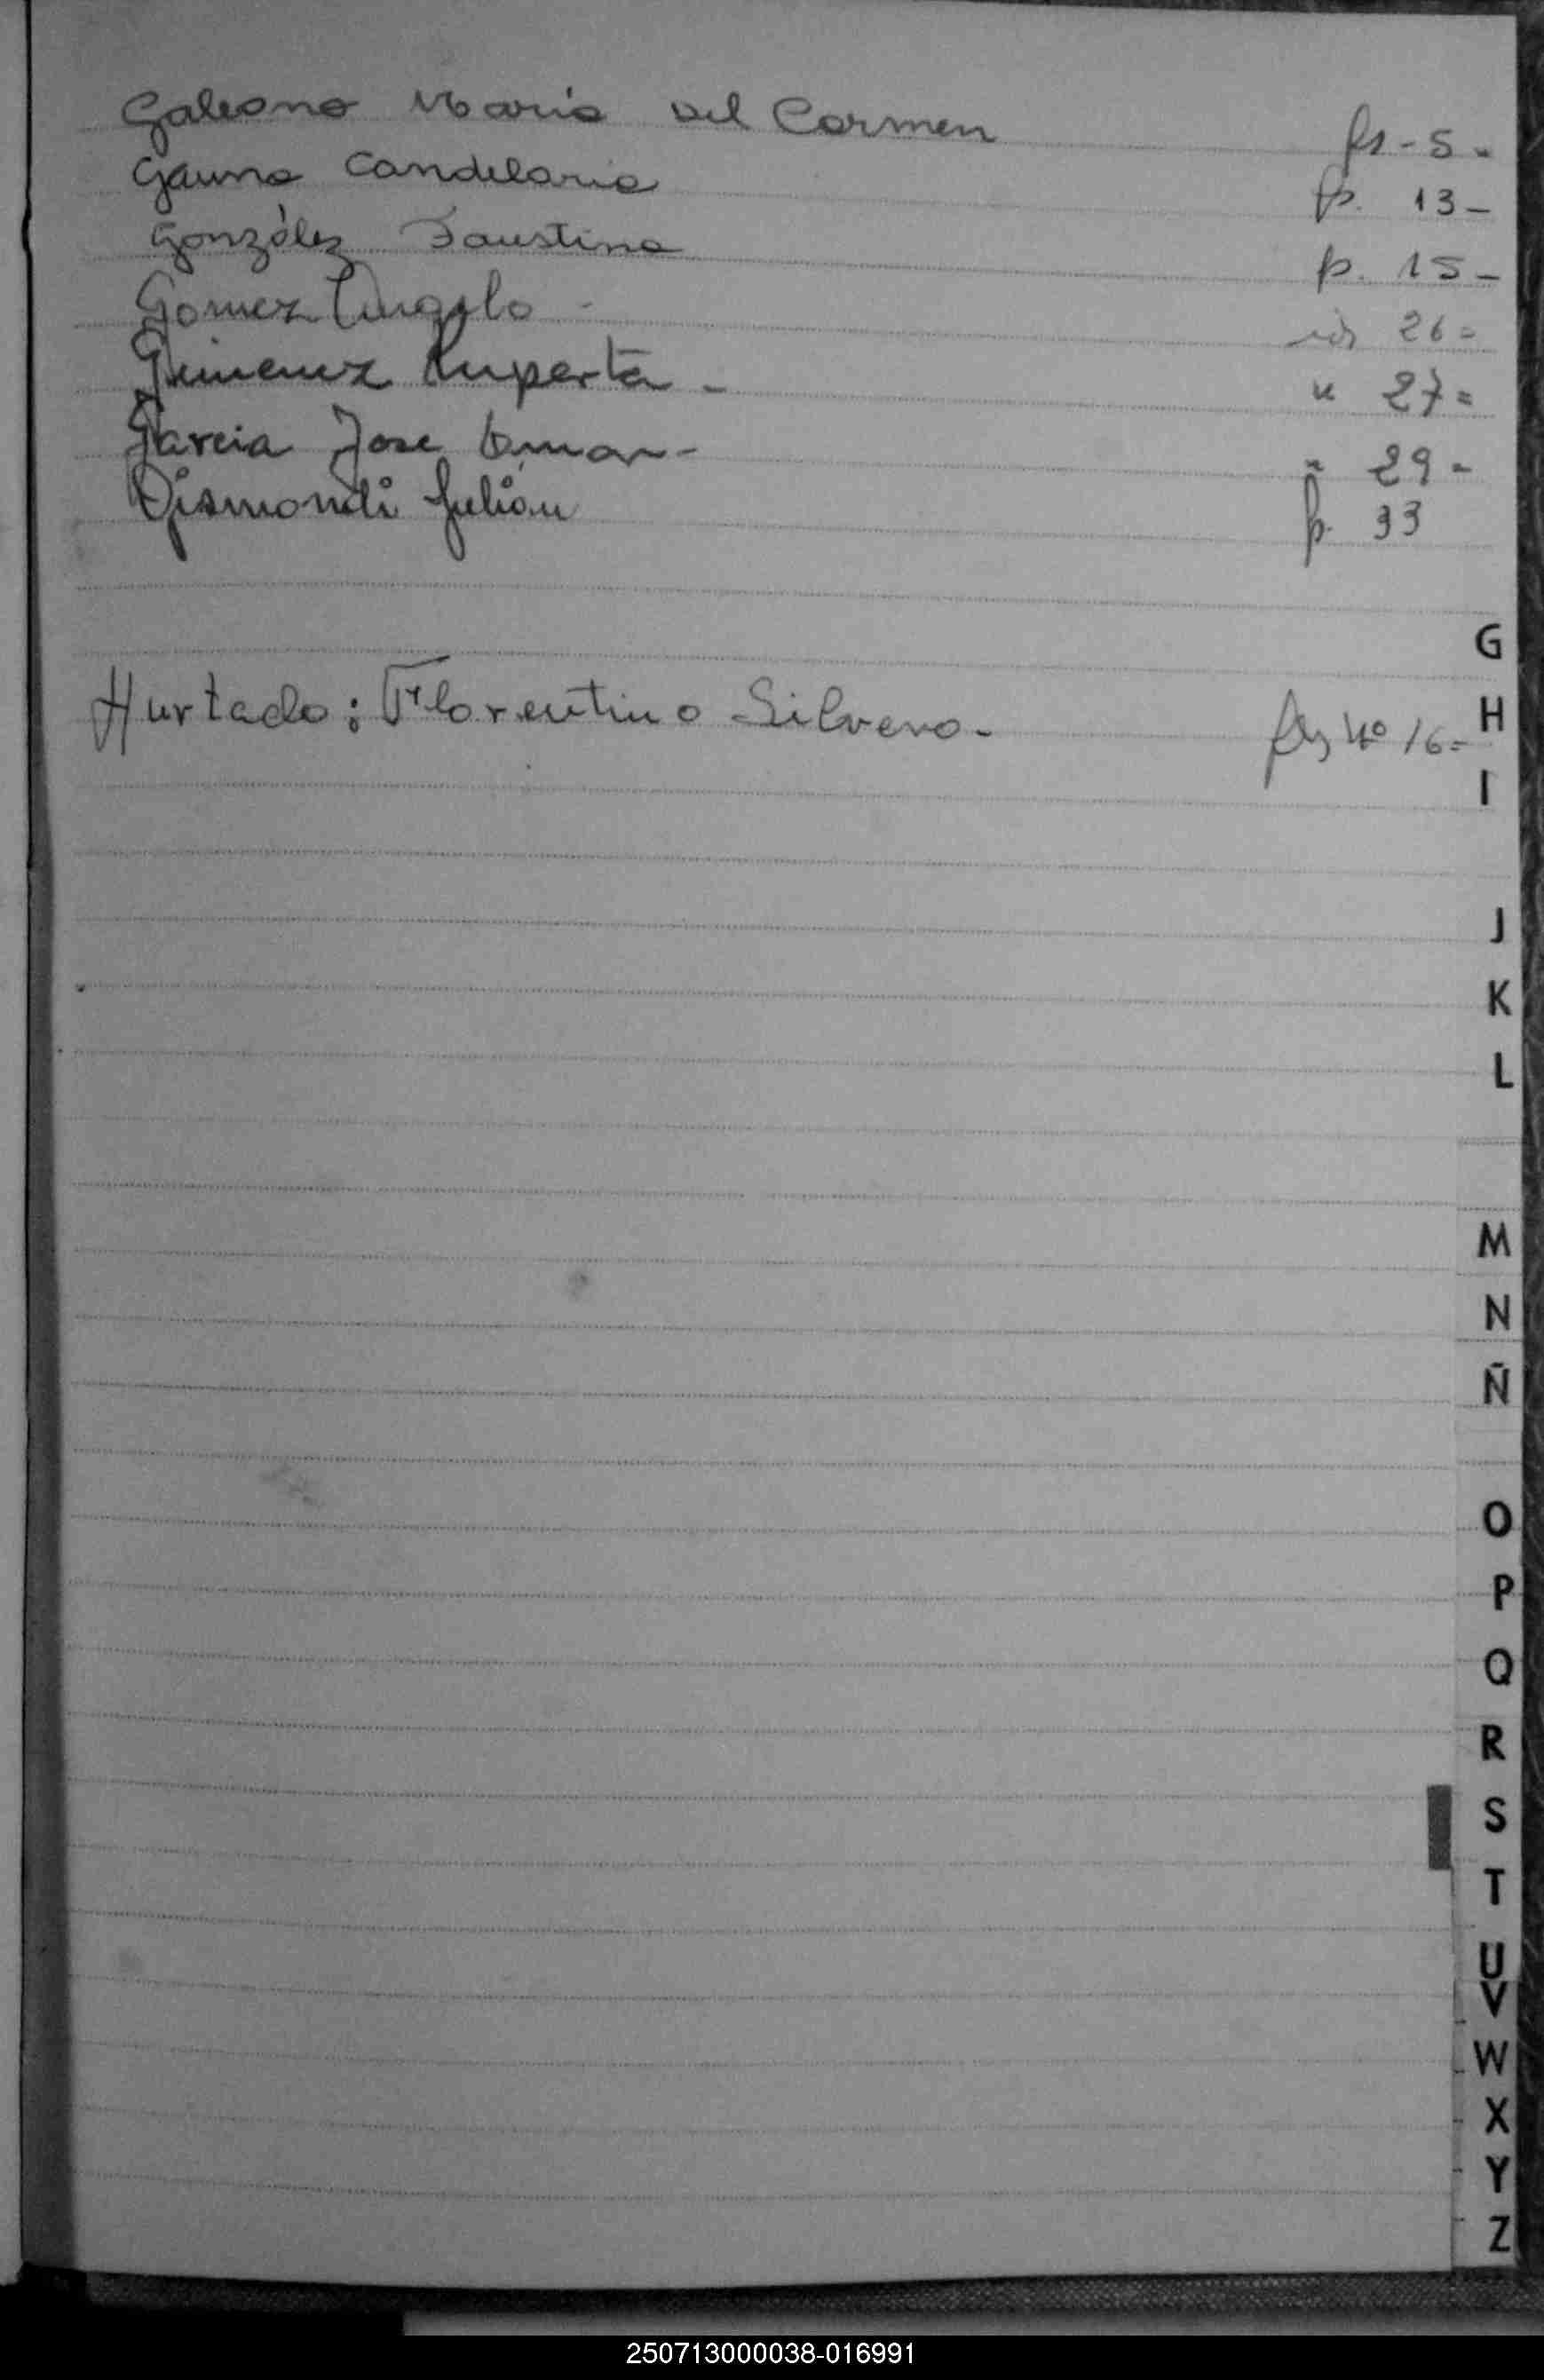 Galeano Maria del Carmen fs - 5 -
Gauna Candelaria fs. 13 -
González Faustina fs. 15 -
Gomez Angela - 26 =
Gimenez Ruperta - " 27 =
Garcia Jose Omar - " 29 =
Gismondi Julián fs. 33
Hurtado: Florentino Silvero - Nº 16 =
G
H
I
J
K
L
M
N
Ñ
O
P
Q
R
S
T
U
V
W
X
Y
Z
250713000038-016991